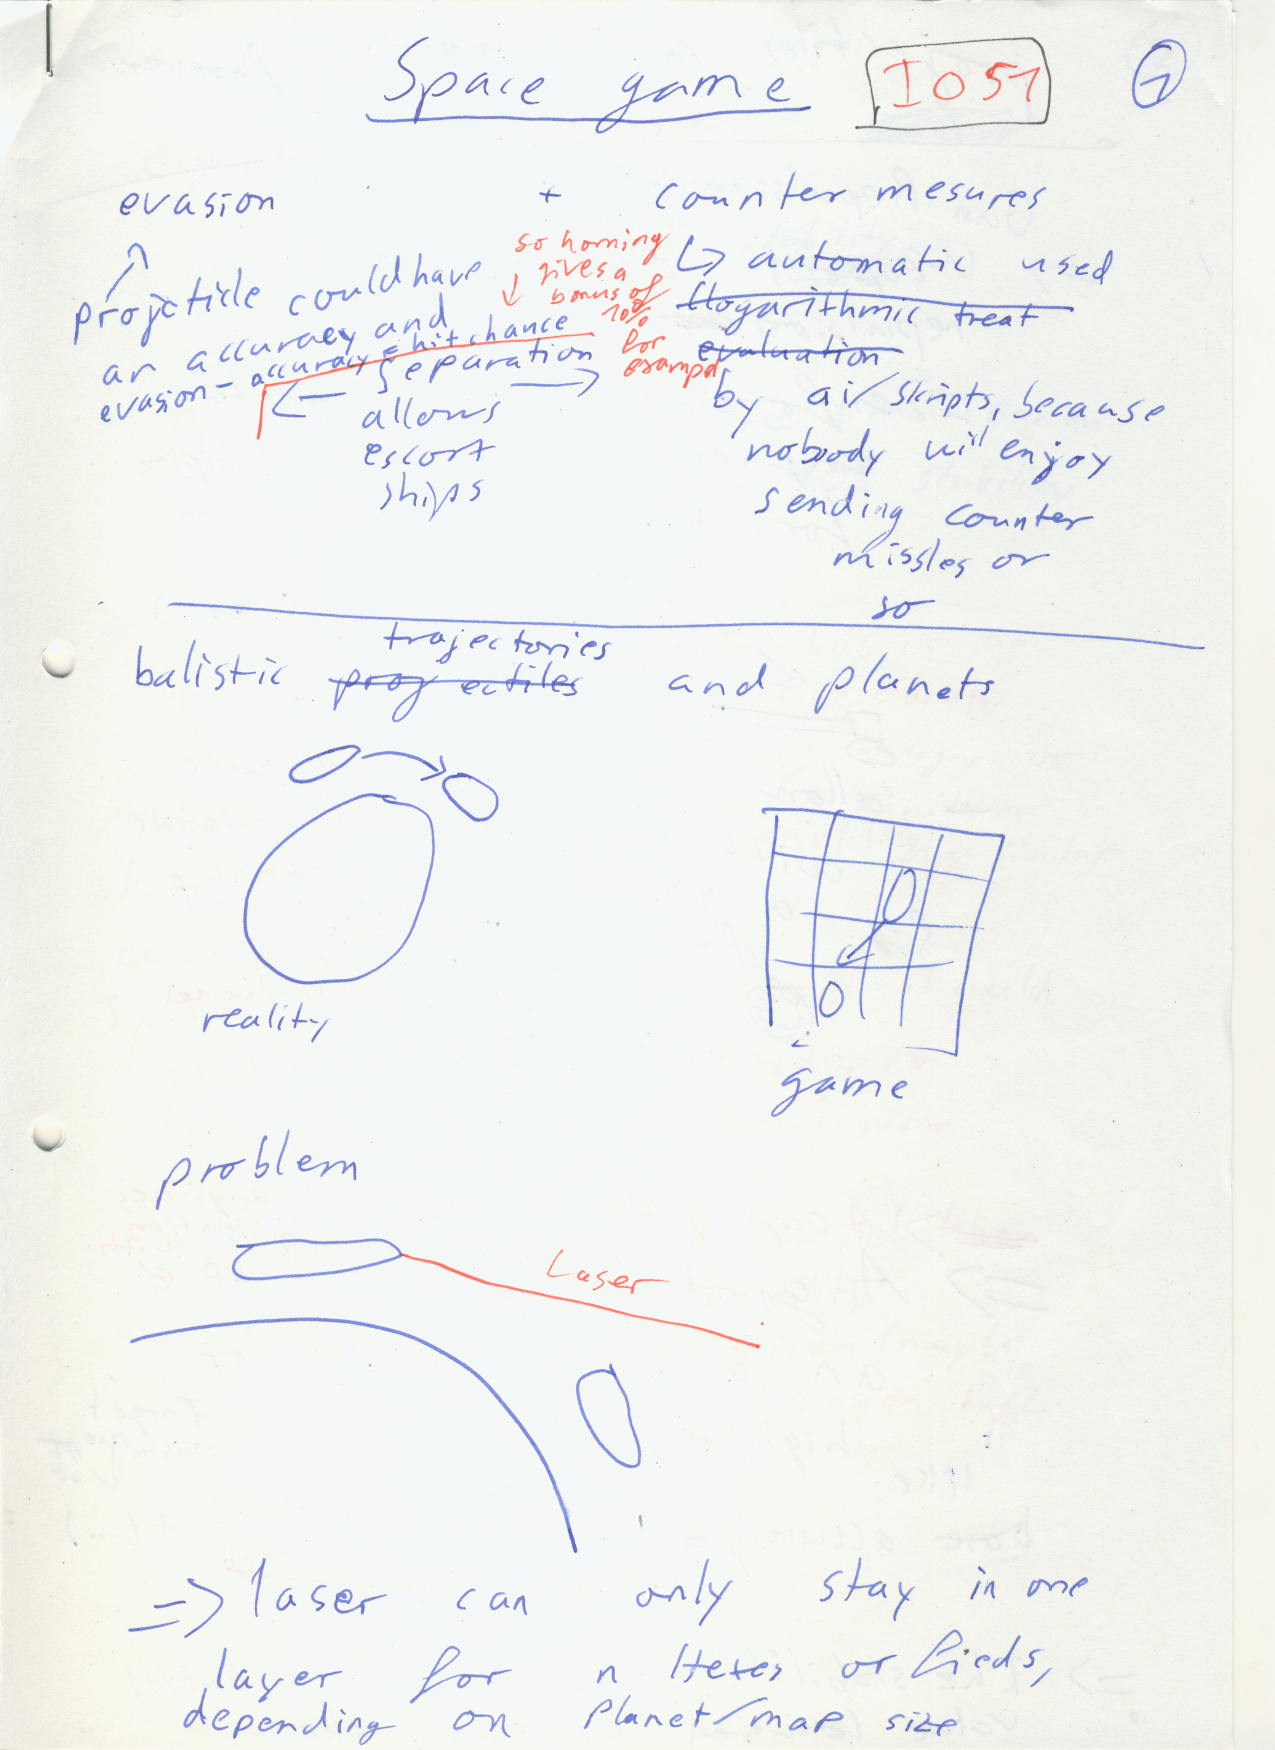 Space game
IO51
1
evasion + counter mesures
projectile could have
an accuracy and
evasion - accuracy = hit chance
so homing
gives a
bonus of
10%
for
exampel
separation
allows
escort
ships
↳ automatic used
logarithmic treat
evaluation
by ai/skripts, because
nobody will enjoy
sending counter
missles or
so
trajectories
balistic projectiles and planets
reality
game
problem
Laser
=> laser can only stay in one
layer for n Hexes or fieds,
depending on planet/map size